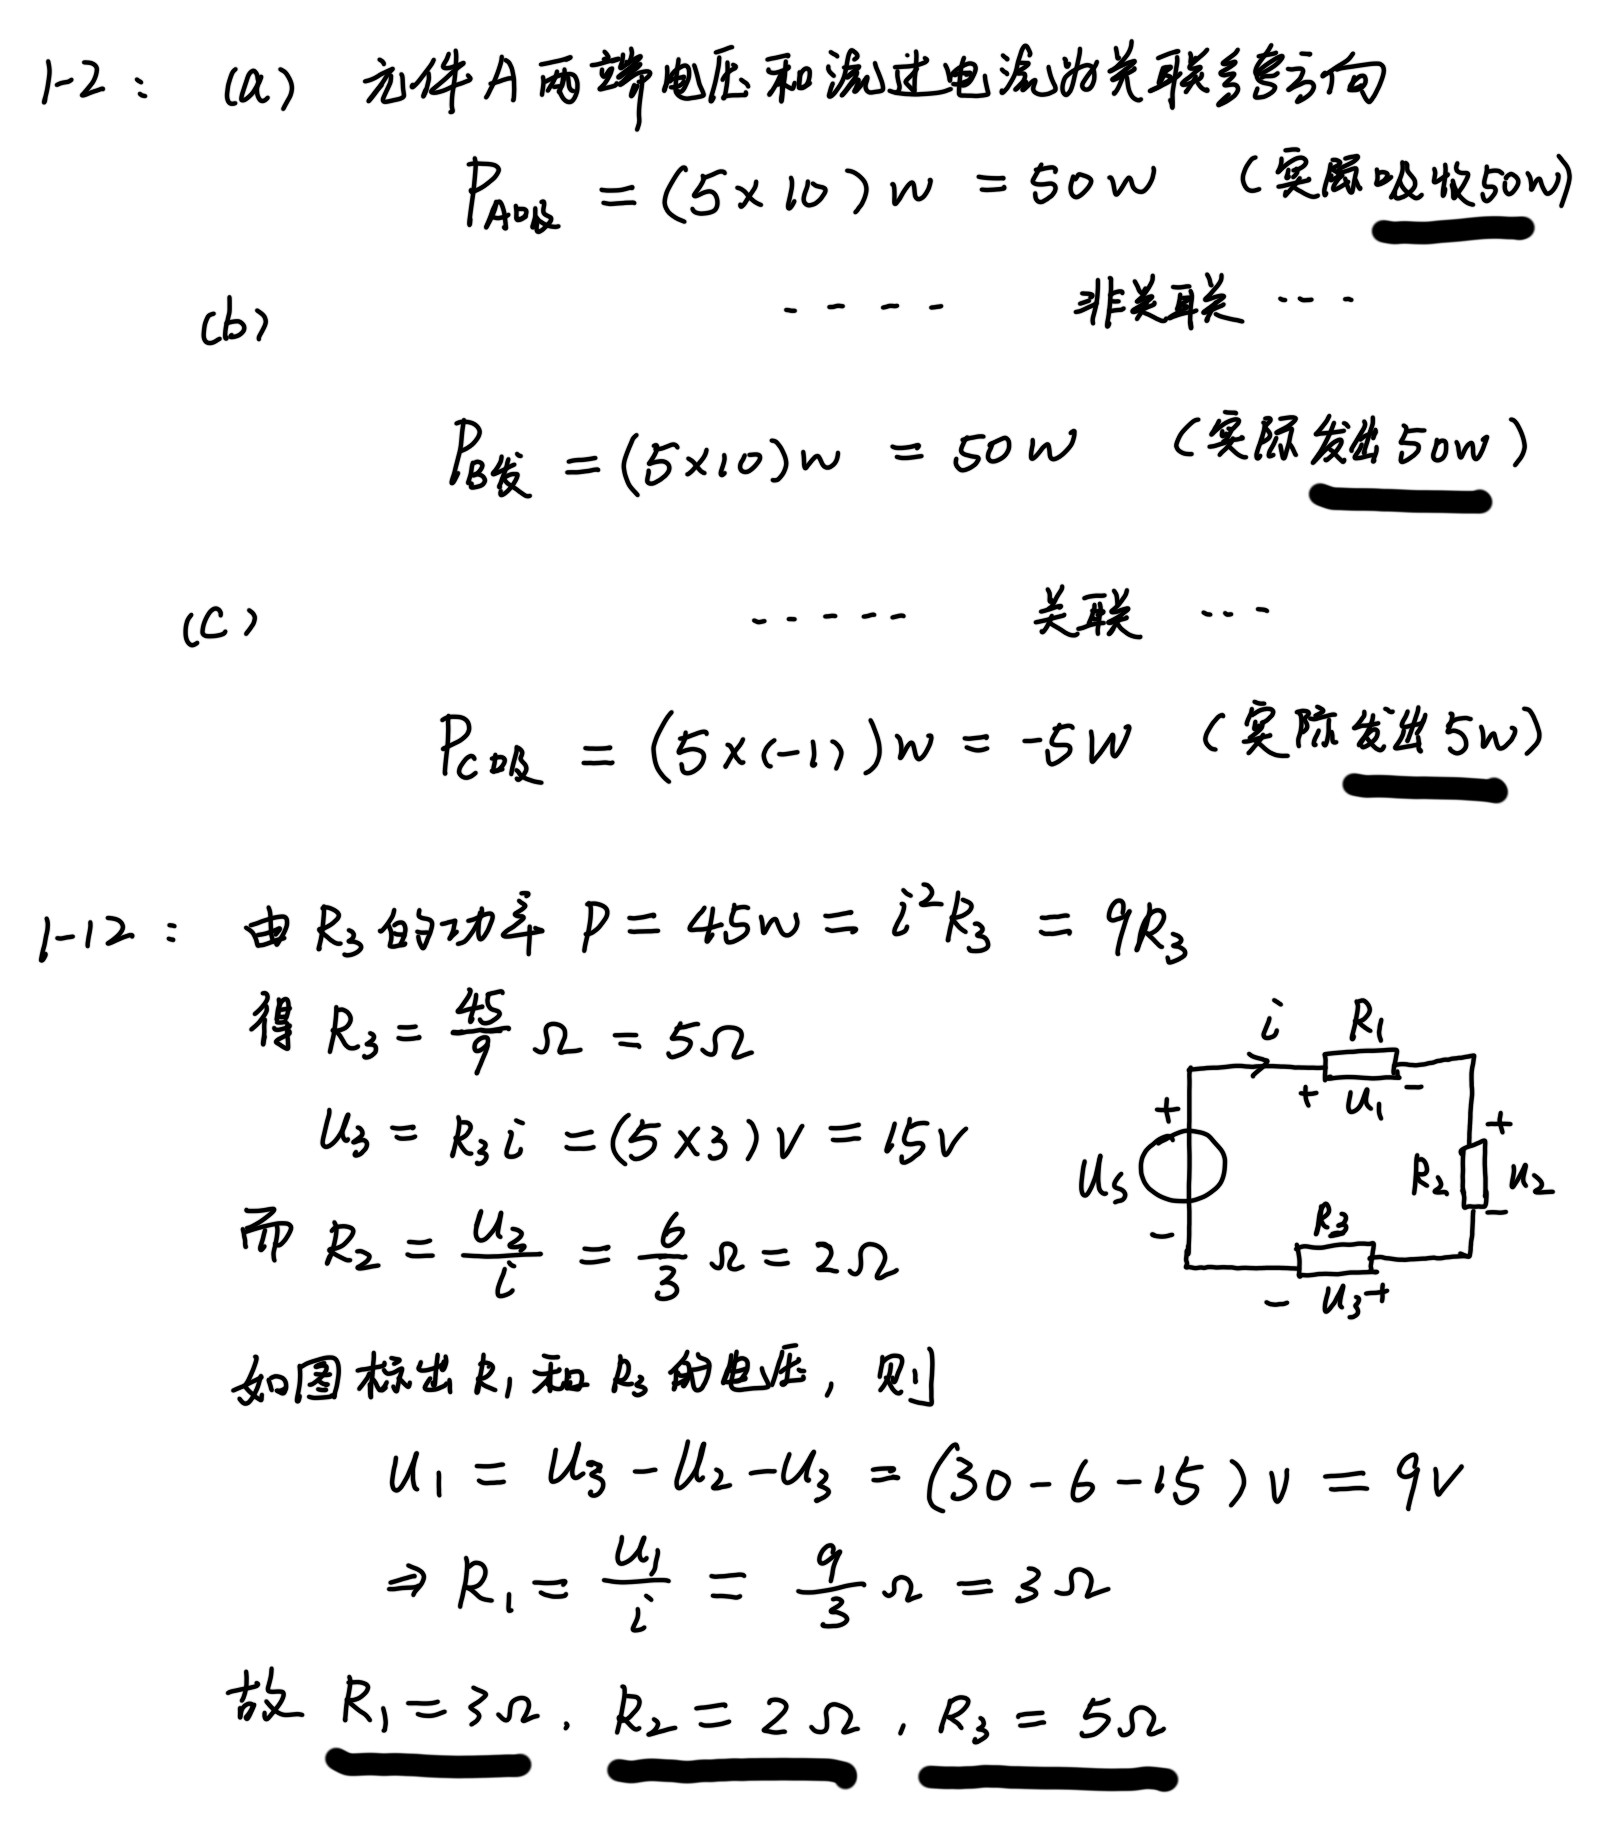 1-2： (a) 元件A两端电压和流过电流为关联参考方向
PA吸 = (5×10)w = 50w （实际吸收50w)
(b) ---- 非关联 ---
PB发 = (5×10)w = 50w （实际发出50w）
(c) ----- 关联 ---
PC吸 = (5×(-1))w = -5w （实际发出5w）
1-12： 由R3的功率 P = 45w = i²R3 = 9R3
得 R3 = 45/9 Ω = 5Ω
u3 = R3i = (5×3)v = 15v
而 R2 = u2/i = 6/3 Ω = 2Ω
如图标出R1和R3的电压，则
u1 = u3 - u2 - u3 = (30-6-15)v = 9v
⇒ R1 = u1/i = 9/3 Ω = 3Ω
故 R1 = 3Ω、R2 = 2Ω，R3 = 5Ω
i R1
+ u1 -
+
us
-
+
R2 u2
-
R3
- u3 +